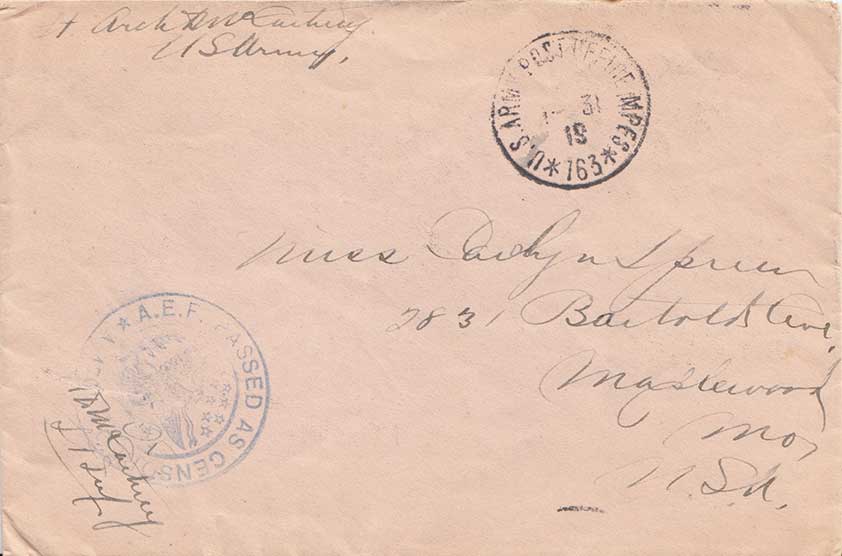 Lt Arch D McCartney
US Army,
U.S. ARMY POST OFFICE MPES
31
19
*763*
Miss Carlyn Spreen
2831 Bartold Ave,
Maplewood
Mo,
U.S.A.
* A.E.F. PASSED AS CENS
ADMcCartney
Lt Inf